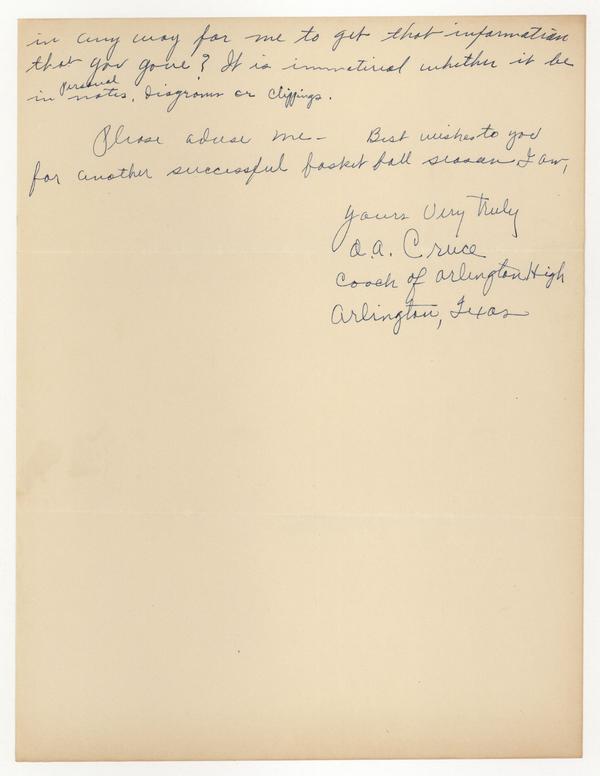 in any way for me to get that information
that you gave? It is immatirial whether it be
in Personal notes, Diagrams or Clippings.
Please advise me - Best wishes to you
for another successful basket ball season, I am,
Yours Very Truly
O.A. Cruce
Coach of Arlington High
Arlington, Texas